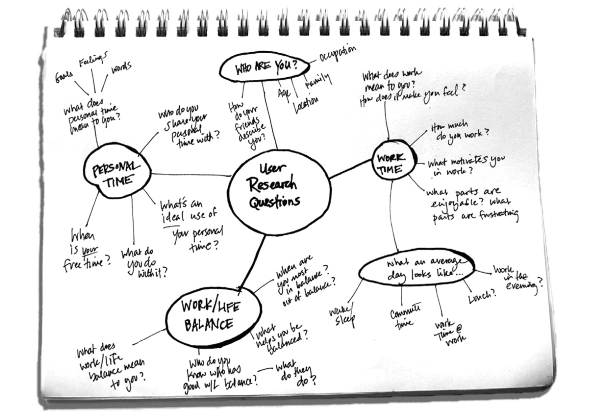 Goals
Feelings
words
what does
personal time
mean to you?
who do you
share your
personal
time with?
PERSONAL
TIME
When
is your
free time?
What do
you do
with it?
what's an
ideal use of
your personal
time?
WHO ARE YOU?
occupation
Family
Location
Age
How
do your
friends
describe
you?
User
Research
Questions
What does work
mean to you?
How does it make you feel?
WORK
TIME
How much
do you work?
What motivates you
in work?
what parts are
enjoyable? what
parts are frustrating
what an average
day looks like...
Wake/
Sleep
Commute
time
work
Time @
work
Lunch?
Work
in the
evening?
WORK/LIFE
BALANCE
When are
you most
in balance?
out of balance?
What
helps you be
balanced?
What does
work/life
balance mean
to you?
Who do you
know who has
good w/L balance?
What
do they
do?